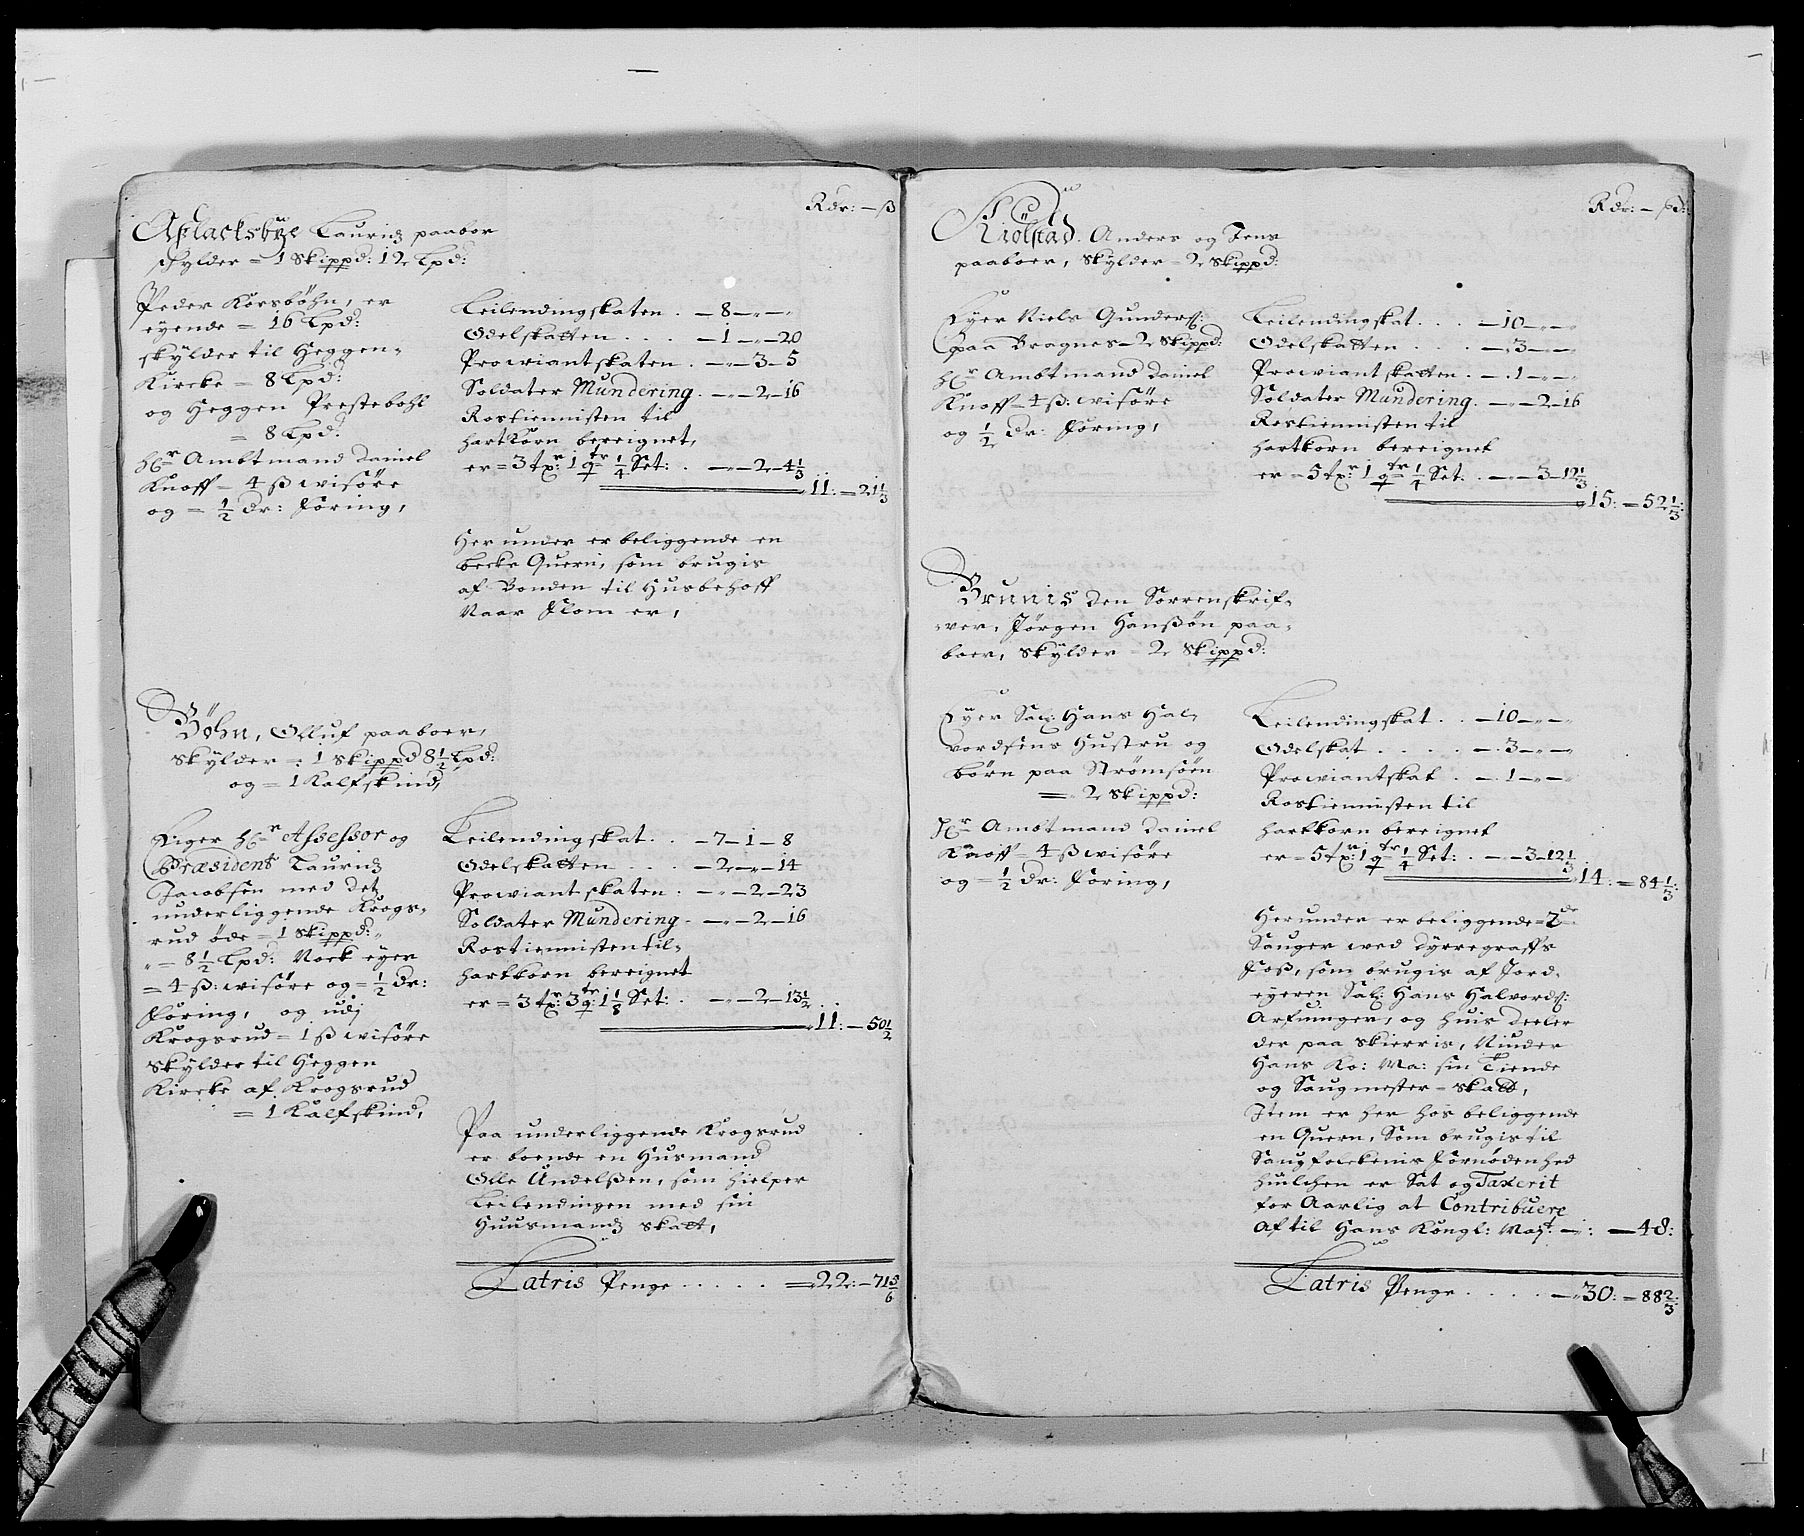 Rdr: – ß
Aslacksbÿe Lauridz paaboer
skylder = 1 Skippd: 12 Lpd:
Peder Korsbøhn, er
eÿende = 16 Lpd:
skÿlder til Heggen-
Kircke = 8 Lpd:
og Heggen Prestebohl
= 8 Lpd:
hr Ambtmand Daniel
Knoff – 4 ß wisøre
og = ½ dr:føring,
Leilendingskaten . – 8 – „ – „
Odelskatten . . . . – 1 – „ – 20
Prowiantskaten . – „ – 3 – 5
Soldater Mundering . – „ – 2 – 16
Rostiennisten til
hartkorn bereignet,
er = 3 tr: 1 qtr ¼ Set: . – „ – 2 – 4⅓
11: – 21⅓
Her under er beliggende en
becke Quern, som brugis
af Bonden til Husbehoff
Naar flom er,
Bøhn, Olluf paaboer,
skÿlder = 1 Skippd 8½ Lpd:
og = 1 Kalfskind,
Eiger hr Assessor og
Præsident Lauridz
Jacobsen med det
underliggende Krogs-
rud øde = 1 Skippd:
„ = 8½ Lpd: Nock eyer
= 4 ß: wisøre og = ½ dr:
føring, og udj
Krogsrud = 1 ß wisøre
skÿlder til Heggen
Kircke af Krogsrud
= 1 Kalfskind,
Leilendingskat . . – 7 – 1 – 8
Odelskatten . . . – 2 – „ – 14
Prowiantskaten . – „ – 2 – 23
Soldater Mundering . – „ – 2 – 16
Rostiennisten til-
hartkorn bereignet
er = 3 tr: 3 qtr: 1⅛ Set: . – „ – 2 – 13½
11: – 50½
Paa underliggende Krogsrud
er boende en Husmand
Olle Andelßen, som hielper
Leilendingen med sin
Huusmandz skatt,
Latris Penge . . . . . = 22: – 71⅚
Rdr: – ßd:
Kiölstad. Anders og Jens
paaboer, skÿlder = 2 Skippd:
Eÿer Niels Gunderß:
paa Bragnes – 2 Skippd:
hr Ambtmand Daniel
Knoff – 4 ß: wisøre
og ½ dr: føring,
Leilendingskat . . . – 10 – „ – „
Odelskatten . . . . – „ 3 – „ – „
Prowiantskatten . – . 1 – „ – „
Soldater Mundering . – „ – 2 – 16
Rostiennisten til
hartkorn bereignet
er = 5 tr: 1 qtr ¼ Set: . – „ – 3 – 12⅓
15: – 52⅓:
Brunis den Sorrenskrif-
wer, Jörgen Hanßøn paa-
boer, skÿlder = 2 Skippd:
Eyer Sal: Hans Hal-
vordsens Hustru og
børn paa Strømsøen
= 2 Skippd:
Hr Ambtmand Daniel
Knoff = 4 ß wisøre
og = ½ dr: føring,
Leilendingskat . . – 10 – „ – „
Odelskat . . . . . – . 3 – „ – „
Prowiantskat . – . 1 – „ – „
Rostiennisten til
hartkorn bereignet
er = 5 tr: 1 qtr ¼ Set: . – „ – 3 – 12⅓
14: = 84⅓:
Her under er beliggende = 2de
Sauger wed Dÿrregraffs
Foß, som brugis af Jord-
eyeren Sal: Hans Halvordß:
Arfuinger, og huis deeler
der paa skierris, Niuder
Hans Ko: Ma: sin Tiende
og Saugmester – skatt,
Item er her hos beliggende
en Quern, som brugis til
Saugfolckenis fornødenhed
huilchen er Sat og Taxerit
for Aarlig at Contribuere
Af til Hans Kongl: Mayt. – „ : – 48:
Latris Penge . . . . – „ 30: – 88⅔: